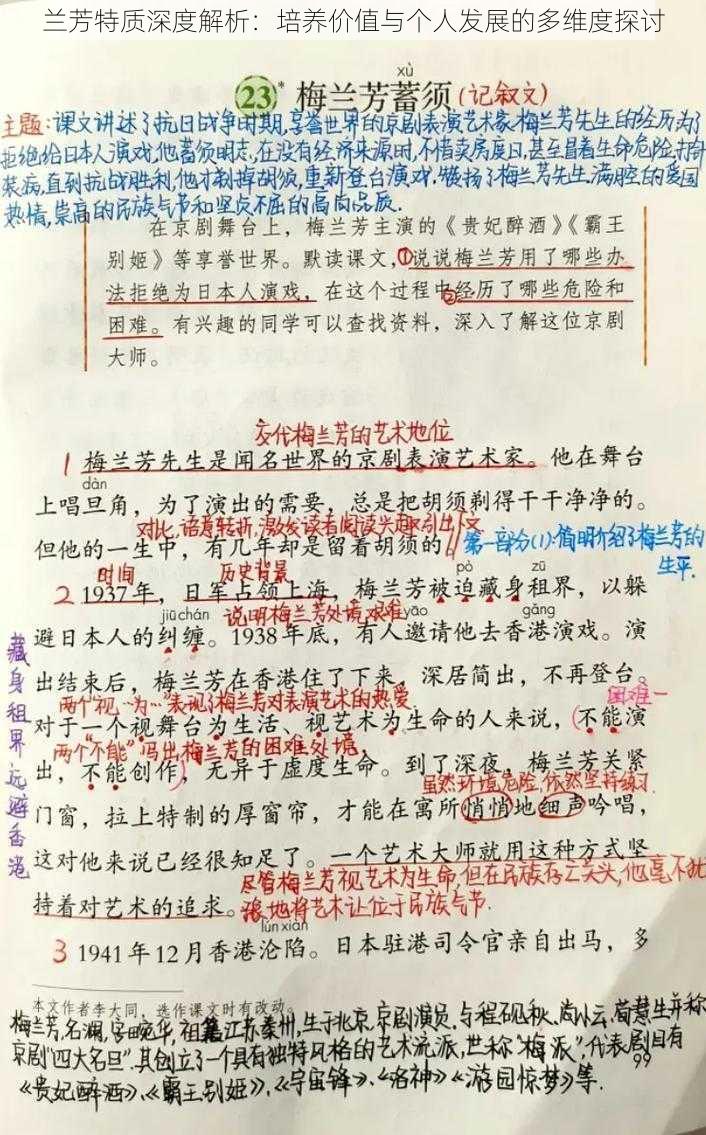 兰芳特质深度解析：培养价值与个人发展的多维度探讨
xù
23* 梅兰芳蓄须(记叙文)
主题:课文讲述了抗日战争时期,享誉世界的京剧表演艺术家梅兰芳先生的经历,为了
拒绝给日本人演戏,他蓄须明志,在没有经济来源时,不惜卖房度日,甚至冒着生命危险打针
装病,直到抗战胜利,他才剃掉胡须,重新登台演戏.赞扬了梅兰芳先生满腔的爱国
热情,崇高的民族气节和坚贞不屈的高尚品质.
在京剧舞台上，梅兰芳主演的《贵妃醉酒》《霸王
别姬》等享誉世界。默读课文，①说说梅兰芳用了哪些办
法拒绝为日本人演戏，在这个过程中②经历了哪些危险和
困难。有兴趣的同学可以查找资料，深入了解这位京剧
大师。
交代梅兰芳的艺术地位
1 梅兰芳先生是闻名世界的京剧表演艺术家。他在舞台
dàn
上唱旦角，为了演出的需要，总是把胡须剃得干干净净的。
对比,语意转折,激发读者阅读兴趣,引出下文
但他的一生中，有几年却是留着胡须的。// 第一部分(1):简明介绍了梅兰芳的
生平.
时间 历史背景 pò zū
2 1937年，日军占领上海，梅兰芳被迫藏身租界，以躲
jiū chán 说明梅兰芳处境艰难 yāo gǎng
避日本人的纠缠。1938年底，有人邀请他去香港演戏。演
出结束后，梅兰芳在香港住了下来，深居简出，不再登台。
两个“视…为…”表现了梅兰芳对表演艺术的热爱. 困难一
对于一个视舞台为生活、视艺术为生命的人来说，(不能演
两个“不能”写出梅兰芳的困难处境.
出，不能创作)，无异于虚度生命。到了深夜，梅兰芳关紧
虽然环境危险,依然坚持练习.
门窗，拉上特制的厚窗帘，才能在寓所悄悄地细声吟唱，
这对他来说已经很知足了。一个艺术大师就用这种方式坚
尽管梅兰芳视艺术为生命,但在民族存亡关头,他毫不犹
持着对艺术的追求。豫地将艺术让位于民族气节.
lún xiàn
3 1941年12月香港沦陷。日本驻港司令官亲自出马，多
藏身租界远避香港
本文作者李大同，选作课文时有改动。
梅兰芳,名澜,字畹华,祖籍江苏泰州,生于北京,京剧演员.与程砚秋、尚小云、荀慧生并称
京剧“四大名旦”.其创立了一个具有独特风格的艺术流派,世称“梅派”,代表剧目有
99
《贵妃醉酒》、《霸王别姬》、《宇宙锋》、《洛神》《游园惊梦》等.